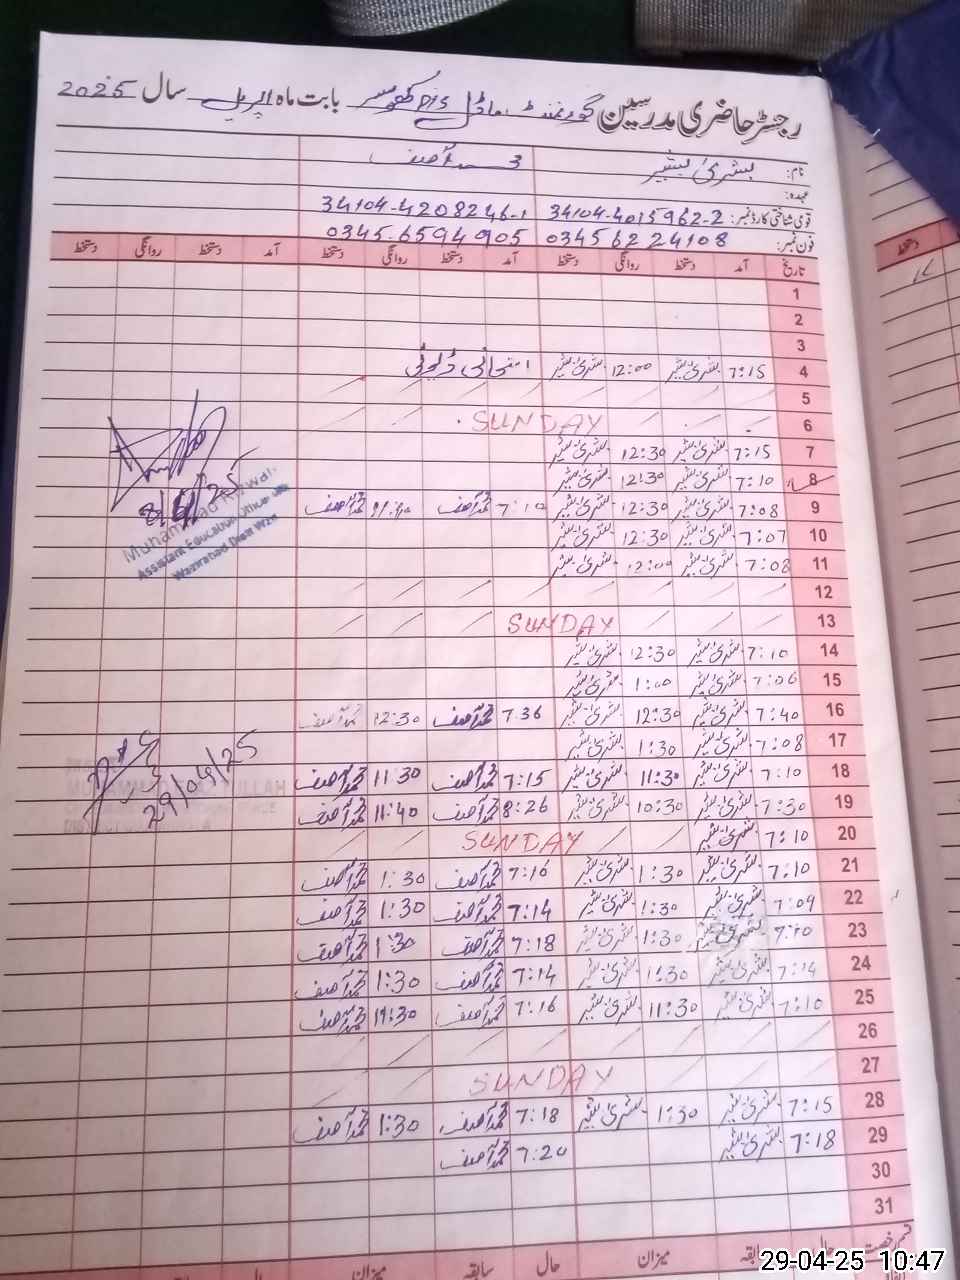 رجسٹر حاضری مدرسین گورنمنٹ ماڈل بابت ماہ اپریل سال 2025
نام: بشریٰ بشیر محمد آصف
عہدہ:
قومی شناختی کارڈ نمبر: 34104-4015962-2 34104-4208246-1
فون نمبر: 0345 6224108 0345-6594905
تاریخ آمد دستخط روانگی دستخط آمد دستخط روانگی دستخط آمد دستخط روانگی دستخط
1
2
3
4 7:15 بشریٰ بشیر 12:00 بشریٰ بشیر امتحانی ڈیوٹی
5
6 SUNDAY
7 7:15 بشریٰ بشیر 12:30 بشریٰ بشیر
8 7:10 بشریٰ بشیر 12:30 بشریٰ بشیر
9 7:08 بشریٰ بشیر 12:30 بشریٰ بشیر 7:10 محمد آصف محمد آصف
10 7:07 بشریٰ بشیر 12:30 بشریٰ بشیر
11 7:08 بشریٰ بشیر 12:00 بشریٰ بشیر
12
13 SUNDAY
14 7:10 بشریٰ بشیر 12:30 بشریٰ بشیر
15 7:06 بشریٰ بشیر 1:00 بشریٰ بشیر
16 7:40 بشریٰ بشیر 12:30 بشریٰ بشیر 7:36 محمد آصف 12:30 محمد آصف
17 7:08 بشریٰ بشیر 1:30 بشریٰ بشیر
18 7:10 بشریٰ بشیر 11:30 بشریٰ بشیر 7:15 محمد آصف 11:30 محمد آصف
19 7:30 بشریٰ بشیر 10:30 بشریٰ بشیر 8:26 محمد آصف 11:40 محمد آصف
20 7:10 بشریٰ بشیر SUNDAY
21 7:10 بشریٰ بشیر 1:30 بشریٰ بشیر 7:16 محمد آصف 1:30 محمد آصف
22 7:09 بشریٰ بشیر 1:30 بشریٰ بشیر 7:14 محمد آصف 1:30 محمد آصف
23 7:10 بشریٰ بشیر 1:30 بشریٰ بشیر 7:18 محمد آصف 1:30 محمد آصف
24 7:14 بشریٰ بشیر 1:30 بشریٰ بشیر 7:14 محمد آصف 1:30 محمد آصف
25 7:10 بشریٰ بشیر 11:30 بشریٰ بشیر 7:16 محمد آصف 11:30 محمد آصف
26
27 SUNDAY
28 7:15 بشریٰ بشیر 1:30 بشریٰ بشیر 7:18 محمد آصف 1:30 محمد آصف
29 7:18 بشریٰ بشیر 7:20 محمد آصف
30
31
قسم رخصت حال سابقہ میزان حال سابقہ میزان حال
8/4/25
Muhammad Rizwan
Assistant Education Officer
Wazirabad Distt Wzd
29/04/25
دستخط
29-04-25 10:47